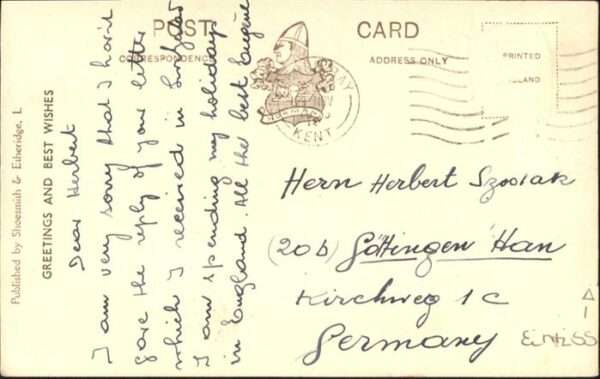 POST CARD
CORRESPONDENCE
ADDRESS ONLY
PRINTED
LAND
BAY
KENT
NORMAN
Published by Shoesmith & Etheridge, L
GREETINGS AND BEST WISHES
Dear Herbert
I am very sorry that I hav'nt
gave the reply of your letter
which I received in
I am spending my holidays
in England. All the best
Herrn Herbert
(20b) Göttingen Han
Kirchweg 1c
Germany